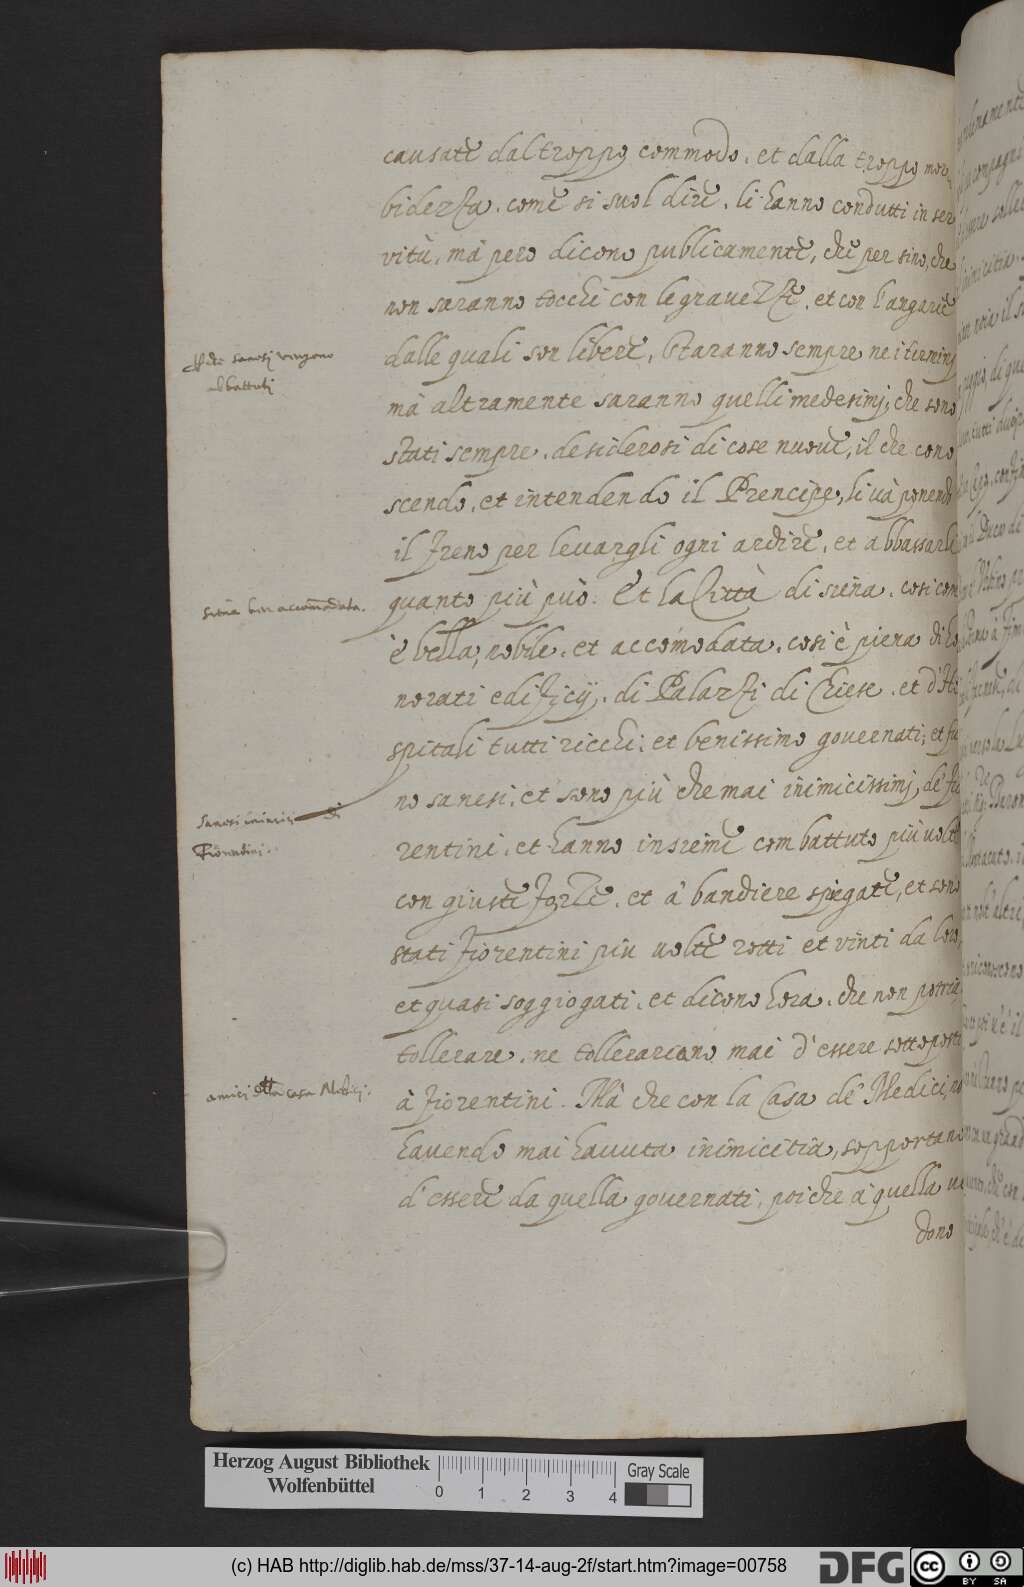 causate dal troppo commodo, et dalla troppo mor
bidezza, come si suol dire, li hanno condutti in ser
vitù, mà pero dicono publicamente, che per sino, che
non saranno tocchi con le gravezze, et con l'angarie
dalle quali son libere, staranno sempre nei termini
mà altramente saranno quelli medesimi, che sono
stati sempre, desiderosi di cose nuove, il che cono
scendo, et intendendo il Prencipe, li và ponendo
il freno per levargli ogni ardire, et abbassarli
quanto più può. Et la Città di siena, cosi com
è bella, nobile, et accomodata, cosi è piena di ho
norati edificij, di Palazzi di Chiese, et d'Ho
spitali tutti ricchi, et benissimo governati, et su
no sanesi, et sono più che mai inimicissimi, de' fio
rentini, et hanno insieme combattuto più volte
con giuste forze, et à bandiere spiegate, et sono
stati fiorentini piu volte rotti et vinti da loro,
et quasi soggiogati, et dicono hora, che non potria
tollerare, ne tollerariano mai d'essere sottoposti
à fiorentini. Mà che con la Casa de' Medici, no
havendo mai havuta inimicitia, sopportano
d'essere da quella governati, poiche à quella ve
dono
sanesi vengono
abbattuti
siena ben accommodata.
sanesi inimici di
Fiorentini.
amici della casa Medici.
Herzog August Bibliothek
Wolfenbüttel
0 1 2 3 4
Gray Scale
(c) HAB http://diglib.hab.de/mss/37-14-aug-2f/start.htm?image=00758
DFG
cc BY SA